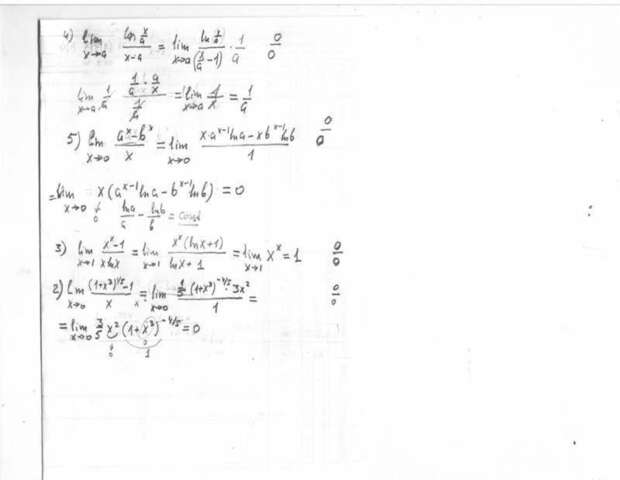 4) lim x→a ln x/a / x-a = lim x→a ln x/a / (x/a -1) · 1/a 0/0
lim x→a 1/a · 1/a · a/x / 1/a = lim x→a 1/x = 1/a
5) lim x→0 a^x - b^x / x = lim x→0 x·a^(x-1) ln a - x b^(x-1) ln b / 1 0/0
= lim x→0 x (a^(x-1) ln a - b^(x-1) ln b) = 0
0 ln a / a - ln b / b = const
3) lim x→1 x^x - 1 / x ln x = lim x→1 x^x (ln x + 1) / ln x + 1 = lim x→1 x^x = 1 0/0
2) lim x→0 (1+x³)^(1/5) - 1 / x = lim x→0 1/5 (1+x³)^(-4/5) · 3x² / 1 = 0/0
= lim x→0 3/5 x² (1+x³)^(-4/5) = 0
0 0 1